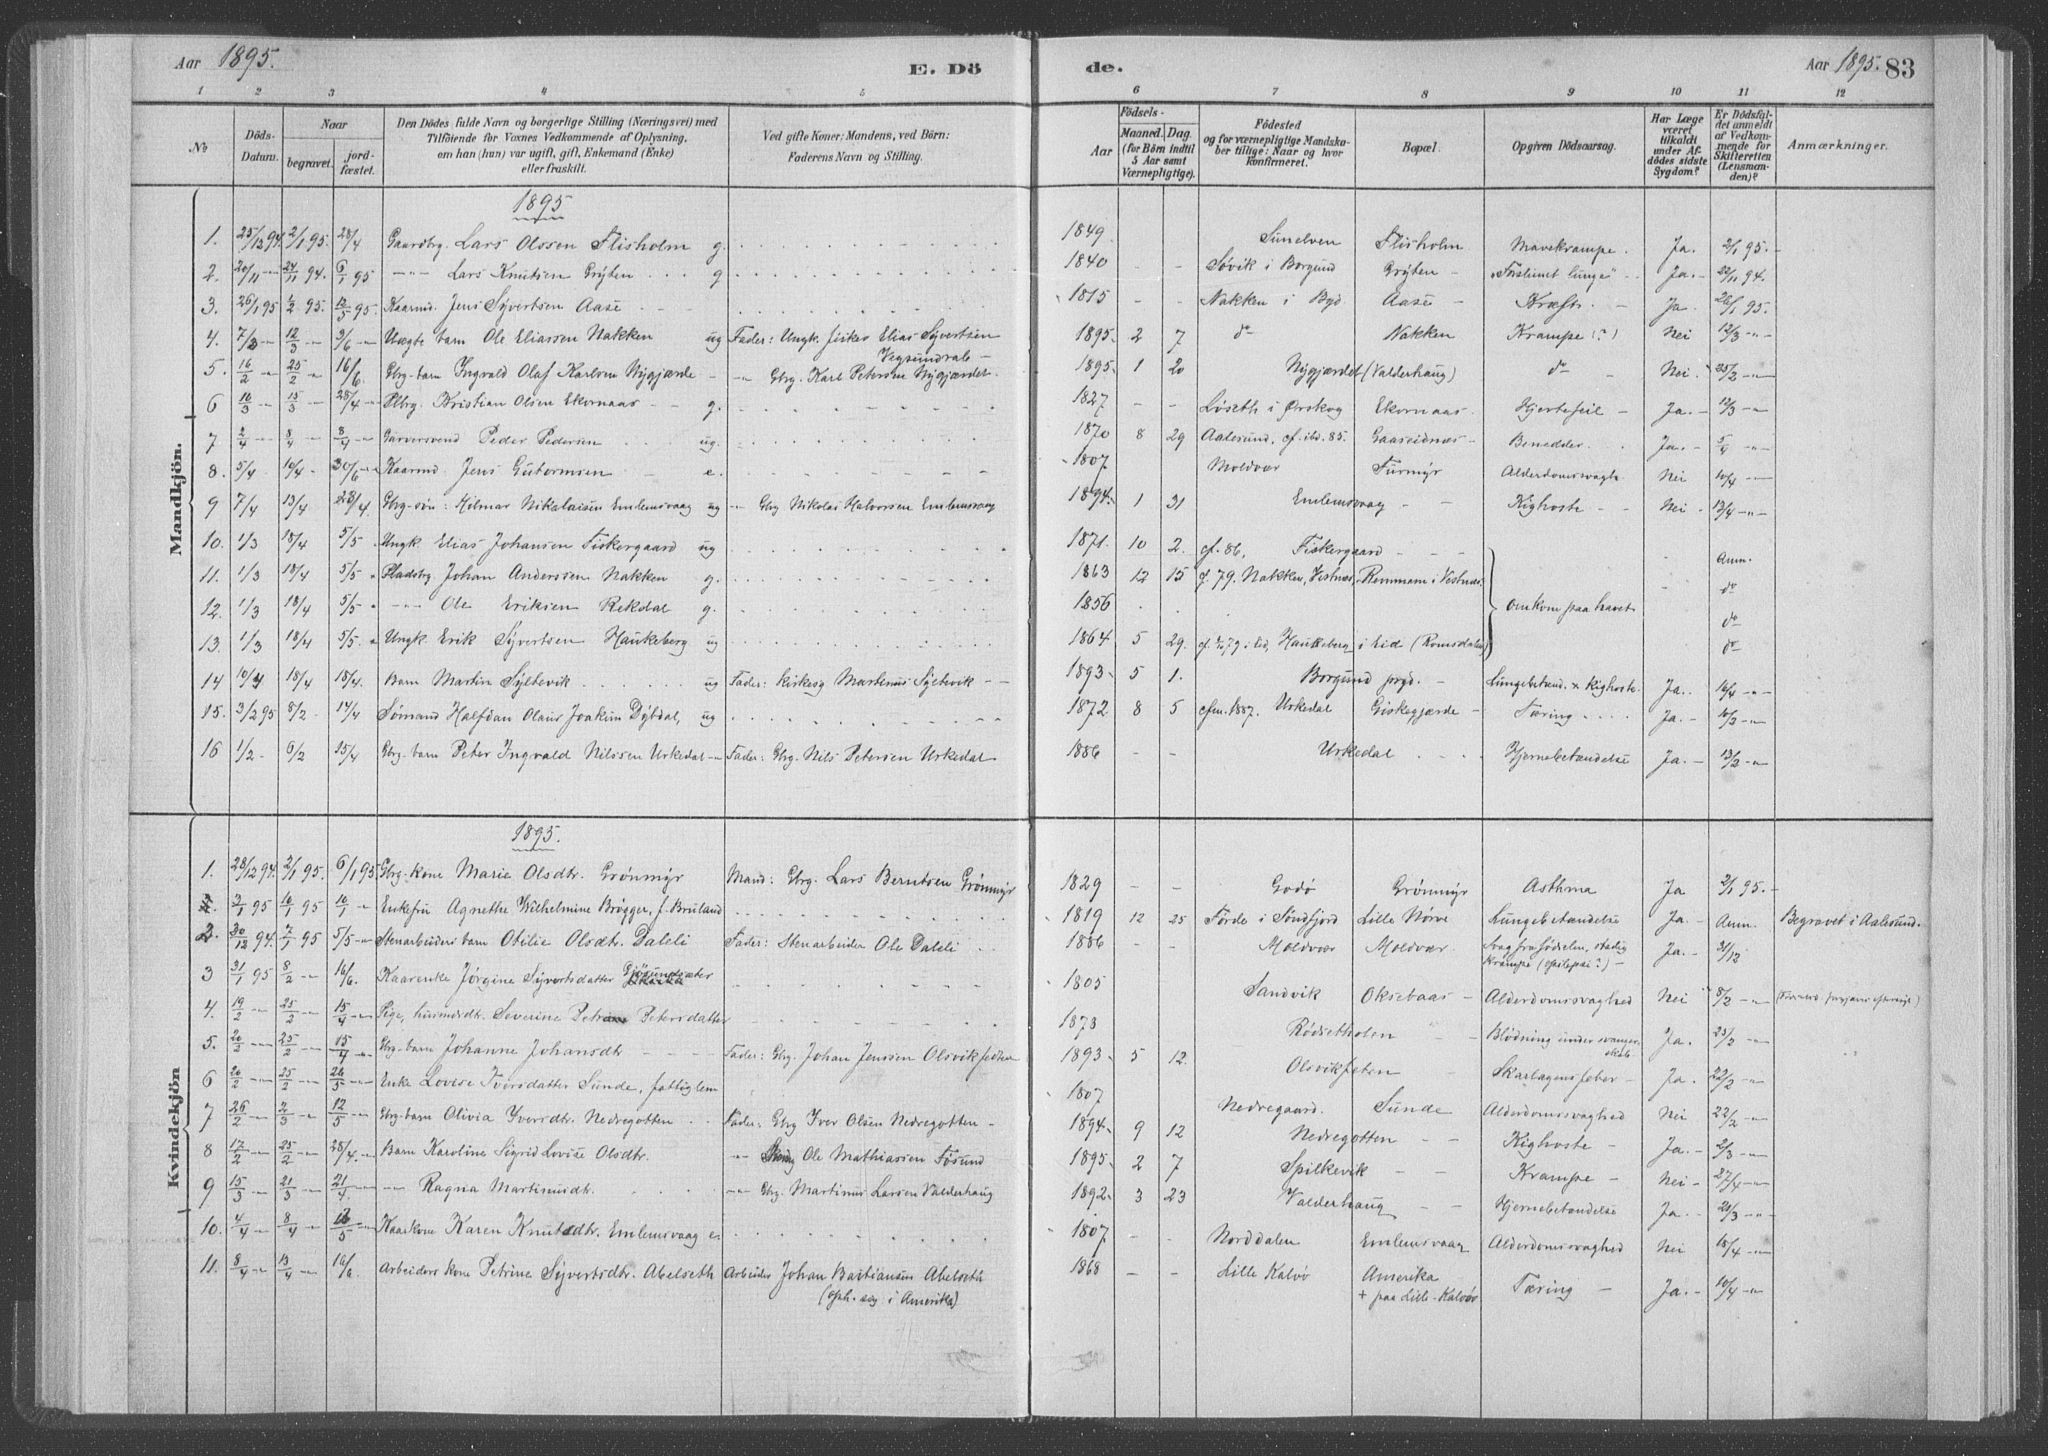 Aar 1895.
E. Dö
de.
Aar 1895. 83
1 2 3 4 5 6 7 8 9 10 11 12
No
Döds-Datum.
Naar
begravet.
jord-fæstet.
Den Dödes fulde Navn og borgerlige Stilling (Næringsvei) med
Tilföiende for Voxnes Vedkommende af Oplysning,
om han (hun) var ugift, gift, Enkemand (Enke)
eller fraskilt.
Ved gifte Koner: Mandens, ved Börn:
Faderens Navn og Stilling.
Födsels-
Aar
Maaned. Dag.
(for Börn indtil
5 Aar samt
Værnepligtige).
Födested
og for værnepligtige Mandska-
ber tillige: Naar og hvor
konfirmeret.
Bopæl.
Opgiven Dödsaarsag.
Har Læge
været
tilkaldt
under Af-
dödes sidste
Sygdom?
Er Dödsfal-
det anmeldt
af Vedkom-
mende for
Skifteretten
(Lensman-
den)?
Anmærkninger.
Mandkjön.
1895
1. 25/12 94. 2/1 95. 28/4 Gaardbrg. Lars Olssen Flisholm g. 1849. Sunelven Flisholm Mavekrampe. Ja. 2/1 95.
2. 20/11 -"- 24/11 94. 6/1 95 -"- Lars Knutsen Gryten g 1840 Søvik i Borgund Gryten Ja. 22/11 94.
3. 26/1 95 1/2 95. 13/5 95. Kaarmd. Jens Syvertsen Aase 1815 Nakken i Byd Aase Kræft Ja 26/1 95.
4. 12/3 3/6 Uægte barn Ole Eliassen Nakken ug Fader: Ungk. fisker Elias Syvertsen
Vegsundvale
1895. 2 7 do Nakken Krampe (?) Nei 12/3
5. 16/2 25/2 16/6. Gbrg. barn Ingvald Olaf Karlsen Nygjærde -"- Gbrg. Karl Petersen Nygjærdet 1895. 1 20 Nygjærdet (Valderhaug) do Nei 25/2
6 10/3 15/3 28/4 Plbrg. Kristian Olsen Ekornaas g. 1827 Løseth i Ørskog Ekornaas. Hjertefeil Ja. 12/3
7 2/4 8/4 8/4 Garversvend Peder Pedersen ug. 1870 8 29 Aalesund, cf. ibd. 85. Gaaseidnæs Benedder Ja. 5/4
8. 5/4 10/4 30/6 Kaarmd. Jens Gutormsen e. 1807 Moldvær Furmyr Alderdomsvagh. Nei 10/4
9 7/4 13/4 28/4. Gbrg. søn: Hilmar Nikolaisen Emlemsvaag ug -"- Gbrg Nikolai Halvorsen Emlemsvaag 1894. 1 31 Emlemsvaag Kighoste Nei 13/4
10. 1/3 18/4 5/5 Ungk. Elias Johansen Fiskergaard ug 1871. 10 2. cf. 86, Fiskergaard Anm.
11. 1/3 18/4 5/5 Pladsbrg. Johan Anderssen Nakken g. 1863 12 15 cf. 79. Nakken, Vestnæs Remmem i Vestnæs. do
12. 1/3 18/4 5/5 -"- Ole Eriksen Rekdal g. 1856 omkom paa havet do
13. 1/3 18/4 5/5. Ungk Erik Syvertsen Haukeberg ug 1864 5 29. Haukeberg i Eid (Romsdalen) do
14 18/4 18/4. Barn Martin Syltevik ug Fader: Kirkesg Martinus Syltevik 1893 5 1. Borgund prgd. Lungebetænd. + Kighoste. Ja. 16/4
15. 3/2 95 8/2 14/4 Sømand Halfdan Olaus Joakim Dybdal, ug 1872. 8 5 cfm. 1887. Urkedal Giskegjærde Tæring Ja. 10/2
16 1/2 6/2 15/4 Gbrg. barn Peter Ingvald Nilssen Urkedal Fader: Gbrg. Nils Petersen Urkedal 1886 Urkedal Hjernebetændelse Ja. 13/2
Kvindekjön
1895.
1. 28/12 94. 2/1 95. 6/1 95. Gbrg. kone Marie Olsdtr. Grønmyr Mand: Gbrg. Lars Berntsen Grønmyr 1829 Godø Grønmyr Asthma Ja 2/1 95.
3/1 95 10/1 95 10/1 Enkefru Agnethe Wilhelmine Brøgger, f. Bruland 1819 12 25 Førde i Søndfjord Lille Nørve Lungebetændelse Ja Anm. Begravet i Aalesund.
2. 30/12 94. 7/1 95 5/5 Stenarbeiders barn Otilie Olsdtr. Daleli Fader: Stenarbeider Ole Daleli 1886 Moldvær Moldvær. Svag fra fødselen, stadig
Krampe (epilepsi?)
Ja. 31/12
3 31/1 95 8/2 16/6. Kaarenke Jørgine Syvertsdatter Gjøsundsæter 1805 Sandvik Oksebaas Alderdomssvaghed Nei 8/2
4. 19/2 25/2 15/4 Pige, husmdsdtr. Severine Petrine Petersdatter 1873 Rødsetholen Blødning under svanger-
skab. Ja. 23/2
5. 20/2 25/2 15/4 Gbrg. barn Johanne Johansdtr Fader: Gbrg. Johan Jenssen Olsvikfeten 1893 5 12. Olsvikfeten Skarlagensfeber Ja. 22/2
6 20/2 25/2 26/5 Enke Lovise Iversdatter Sunde, fattiglem 1807 Nedregaard. Sunde Alderdomssvaghed Nei 22/2
7 26/2 2/3 12/5 Gbrg. barn Olivia Iversdtr. Nedregotten Fader: Gbrg Iver Olsen Nedregotten 1894 9 12 Nedregotten Kighoste Ja. 2/3
8 17/2 25/2 28/4. Barn Karoline Sigrid Lovise Olsdtr. Ole Mathiassen Føsund 1895 2 7 Spilkevik Krampe Nei 27/4
9 15/3 21/3 21/4 -"- Ragna Martinusdtr. -"- Gbrg. Martinus Larsen Valderhaug 1892 3 23 Valderhaug Hjernebetændelse Ja. 21/3
10. 4/4 8/4 Kaarkone Karen Knutsdtr. Emlemsvaag e. 1807 Norddalen Emlemsvaag Alderdomssvaghed Nei 18/4
11. 8/4 13/4 16/6. Arbeiders kone Petrine Syvertsdtr. Abelseth Arbeider Johan Bastiansen Abelseth
(oph. seg i Amerika)
1868 Lille Kalvø Amerika
+ paa Lille-Kalvøy
Tæring Ja. 10/4